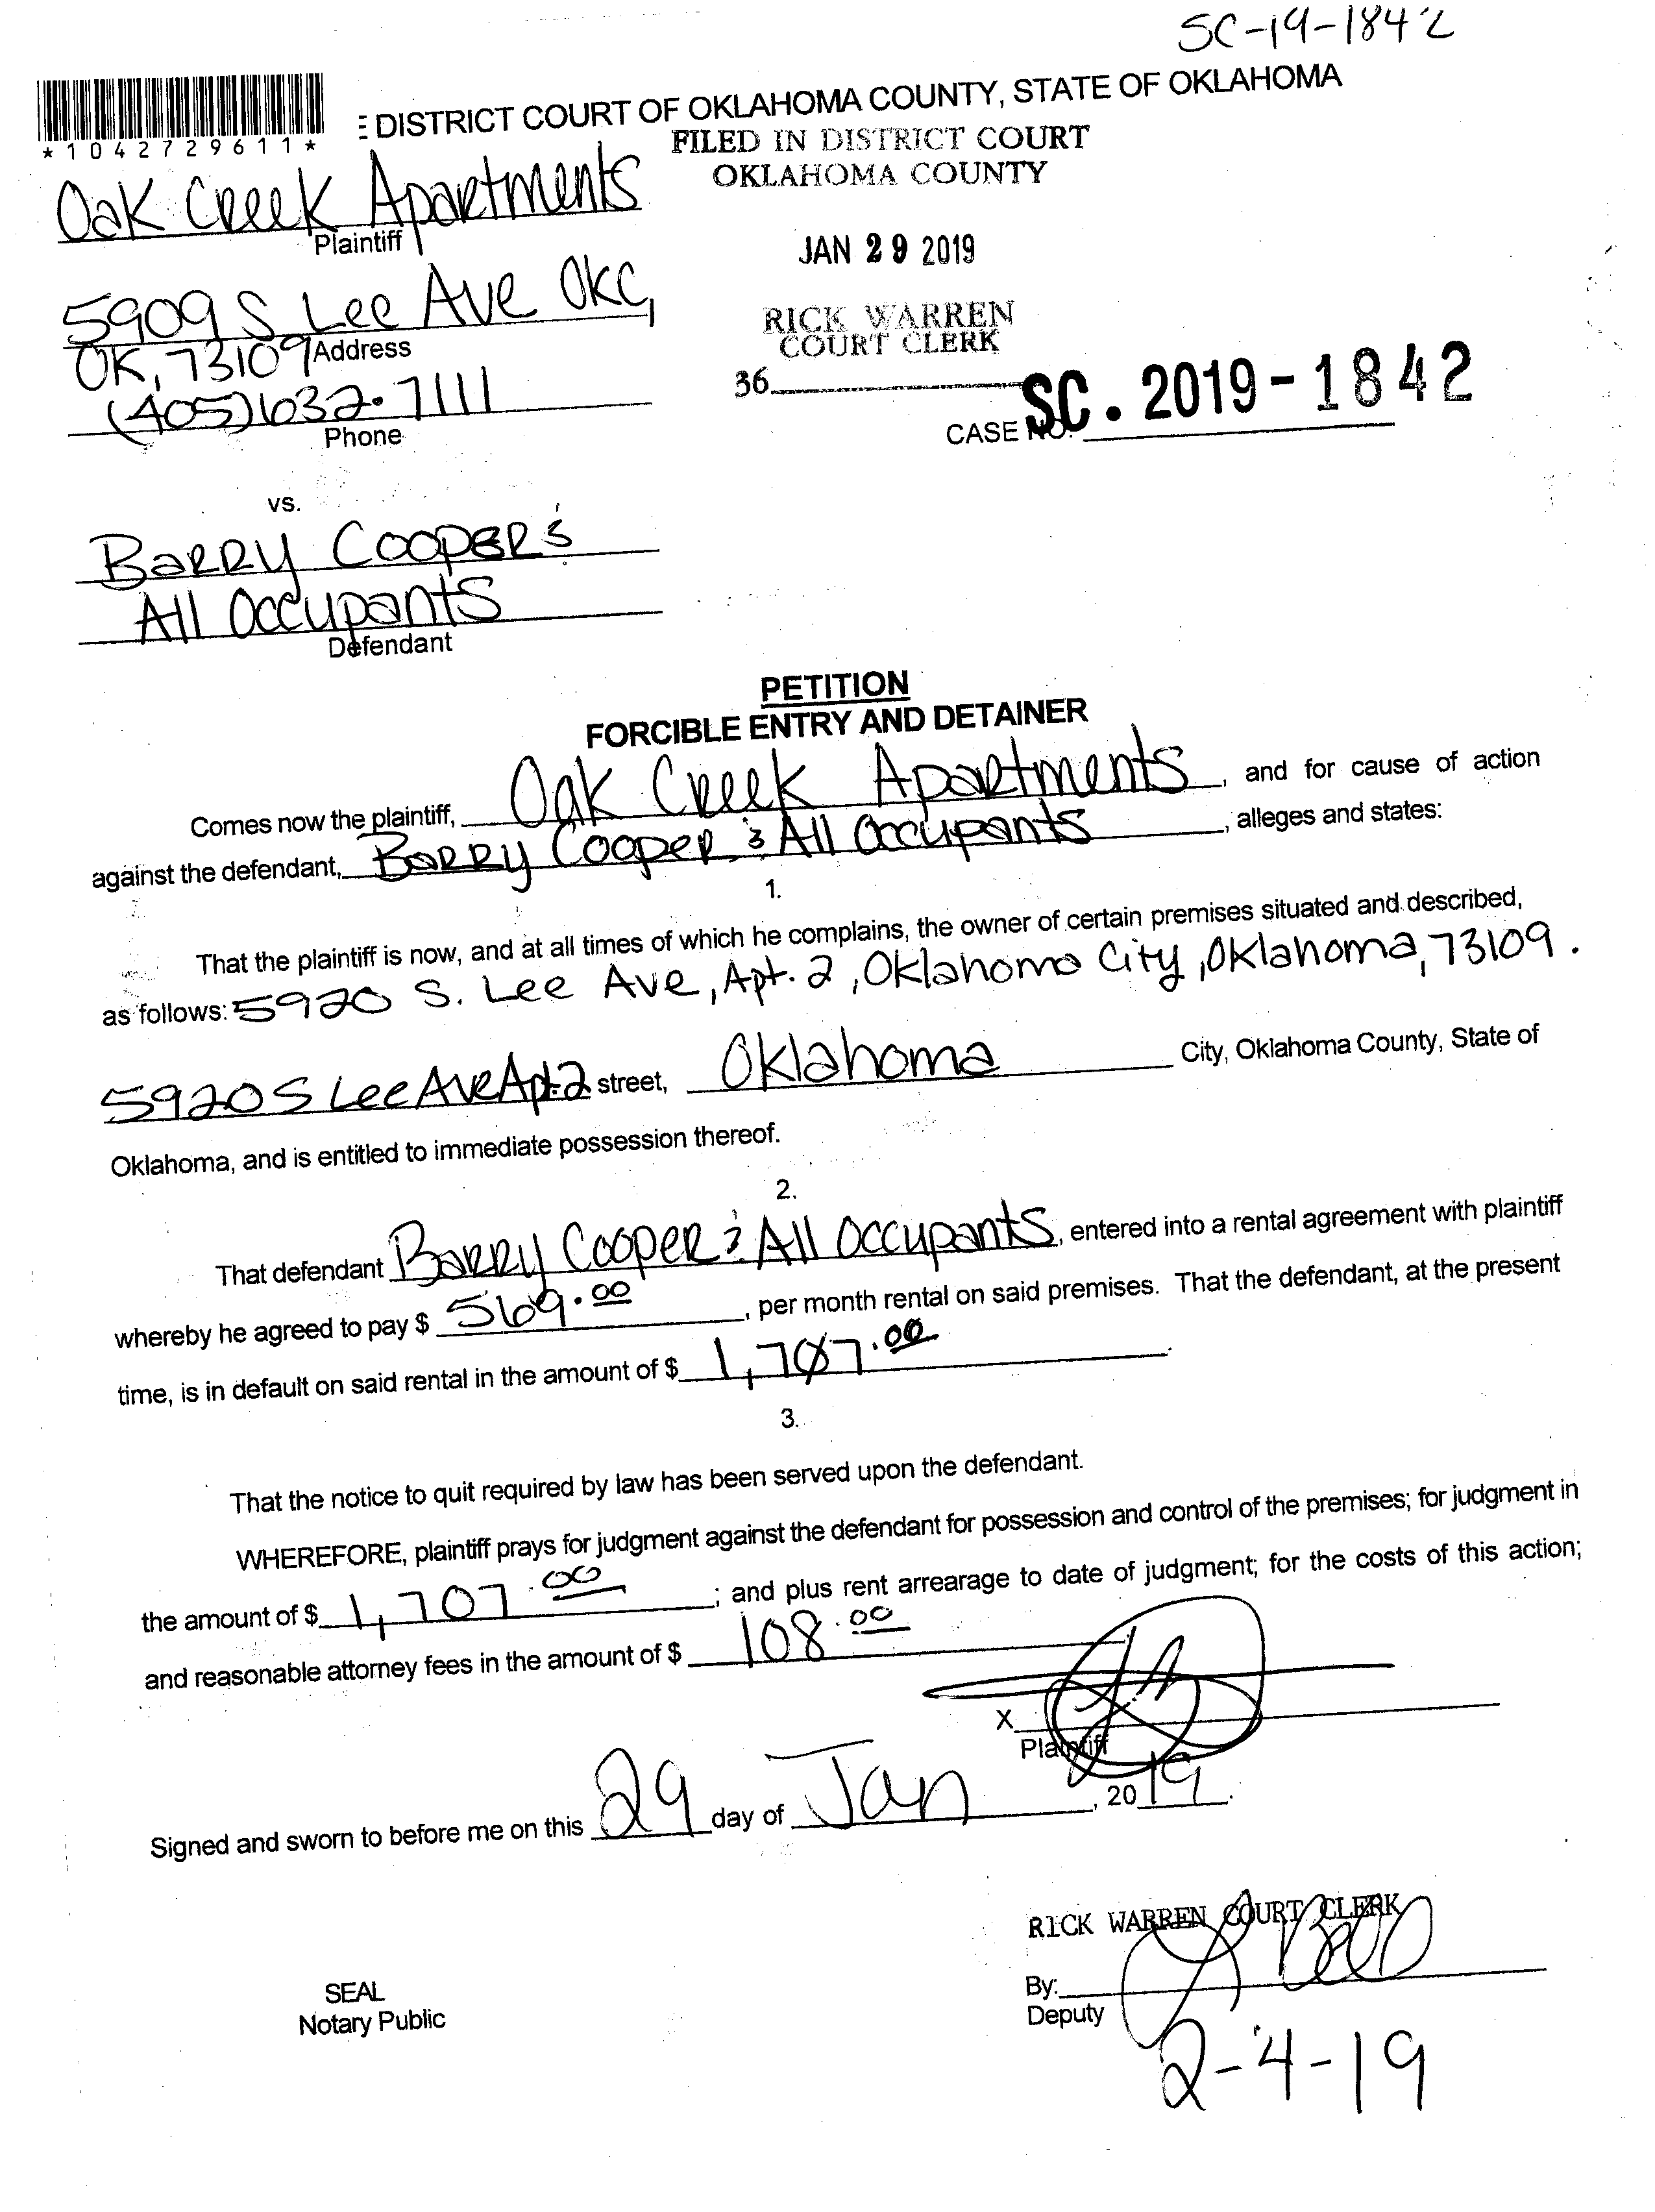 SC-19-1842
E DISTRICT COURT OF OKLAHOMA COUNTY, STATE OF OKLAHOMA
*1042729611*
FILED IN DISTRICT COURT
OKLAHOMA COUNTY
Oak Creek Apartments
Plaintiff
JAN 29 2019
5909 S Lee Ave OKC,
OK, 73109 Address
RICK WARREN
COURT CLERK
36
(405)632-7111
Phone
CASE NO. SC. 2019-1842
vs.
Barry Cooper &
All Occupants
Defendant
PETITION
FORCIBLE ENTRY AND DETAINER
Comes now the plaintiff, Oak Creek Apartments, and for cause of action
against the defendant, Barry Cooper & All Occupants, alleges and states:
1.
That the plaintiff is now, and at all times of which he complains, the owner of certain premises situated and described,
as follows: 5920 S. Lee Ave, Apt. 2, Oklahoma City, Oklahoma, 73109.
5920 S Lee Ave Apt.2 street, Oklahoma City, Oklahoma County, State of
Oklahoma, and is entitled to immediate possession thereof.
2.
That defendant Barry Cooper & All Occupants, entered into a rental agreement with plaintiff
whereby he agreed to pay $ 569.00, per month rental on said premises. That the defendant, at the present
time, is in default on said rental in the amount of $ 1,707.00.
3.
That the notice to quit required by law has been served upon the defendant.
WHEREFORE, plaintiff prays for judgment against the defendant for possession and control of the premises; for judgment in
the amount of $ 1,707.00; and plus rent arrearage to date of judgment; for the costs of this action;
and reasonable attorney fees in the amount of $ 108.00
X
Plaintiff
Signed and sworn to before me on this 29 day of Jan, 2019.
RICK WARREN COURT CLERK
SEAL
Notary Public
By:
Deputy
2-4-19